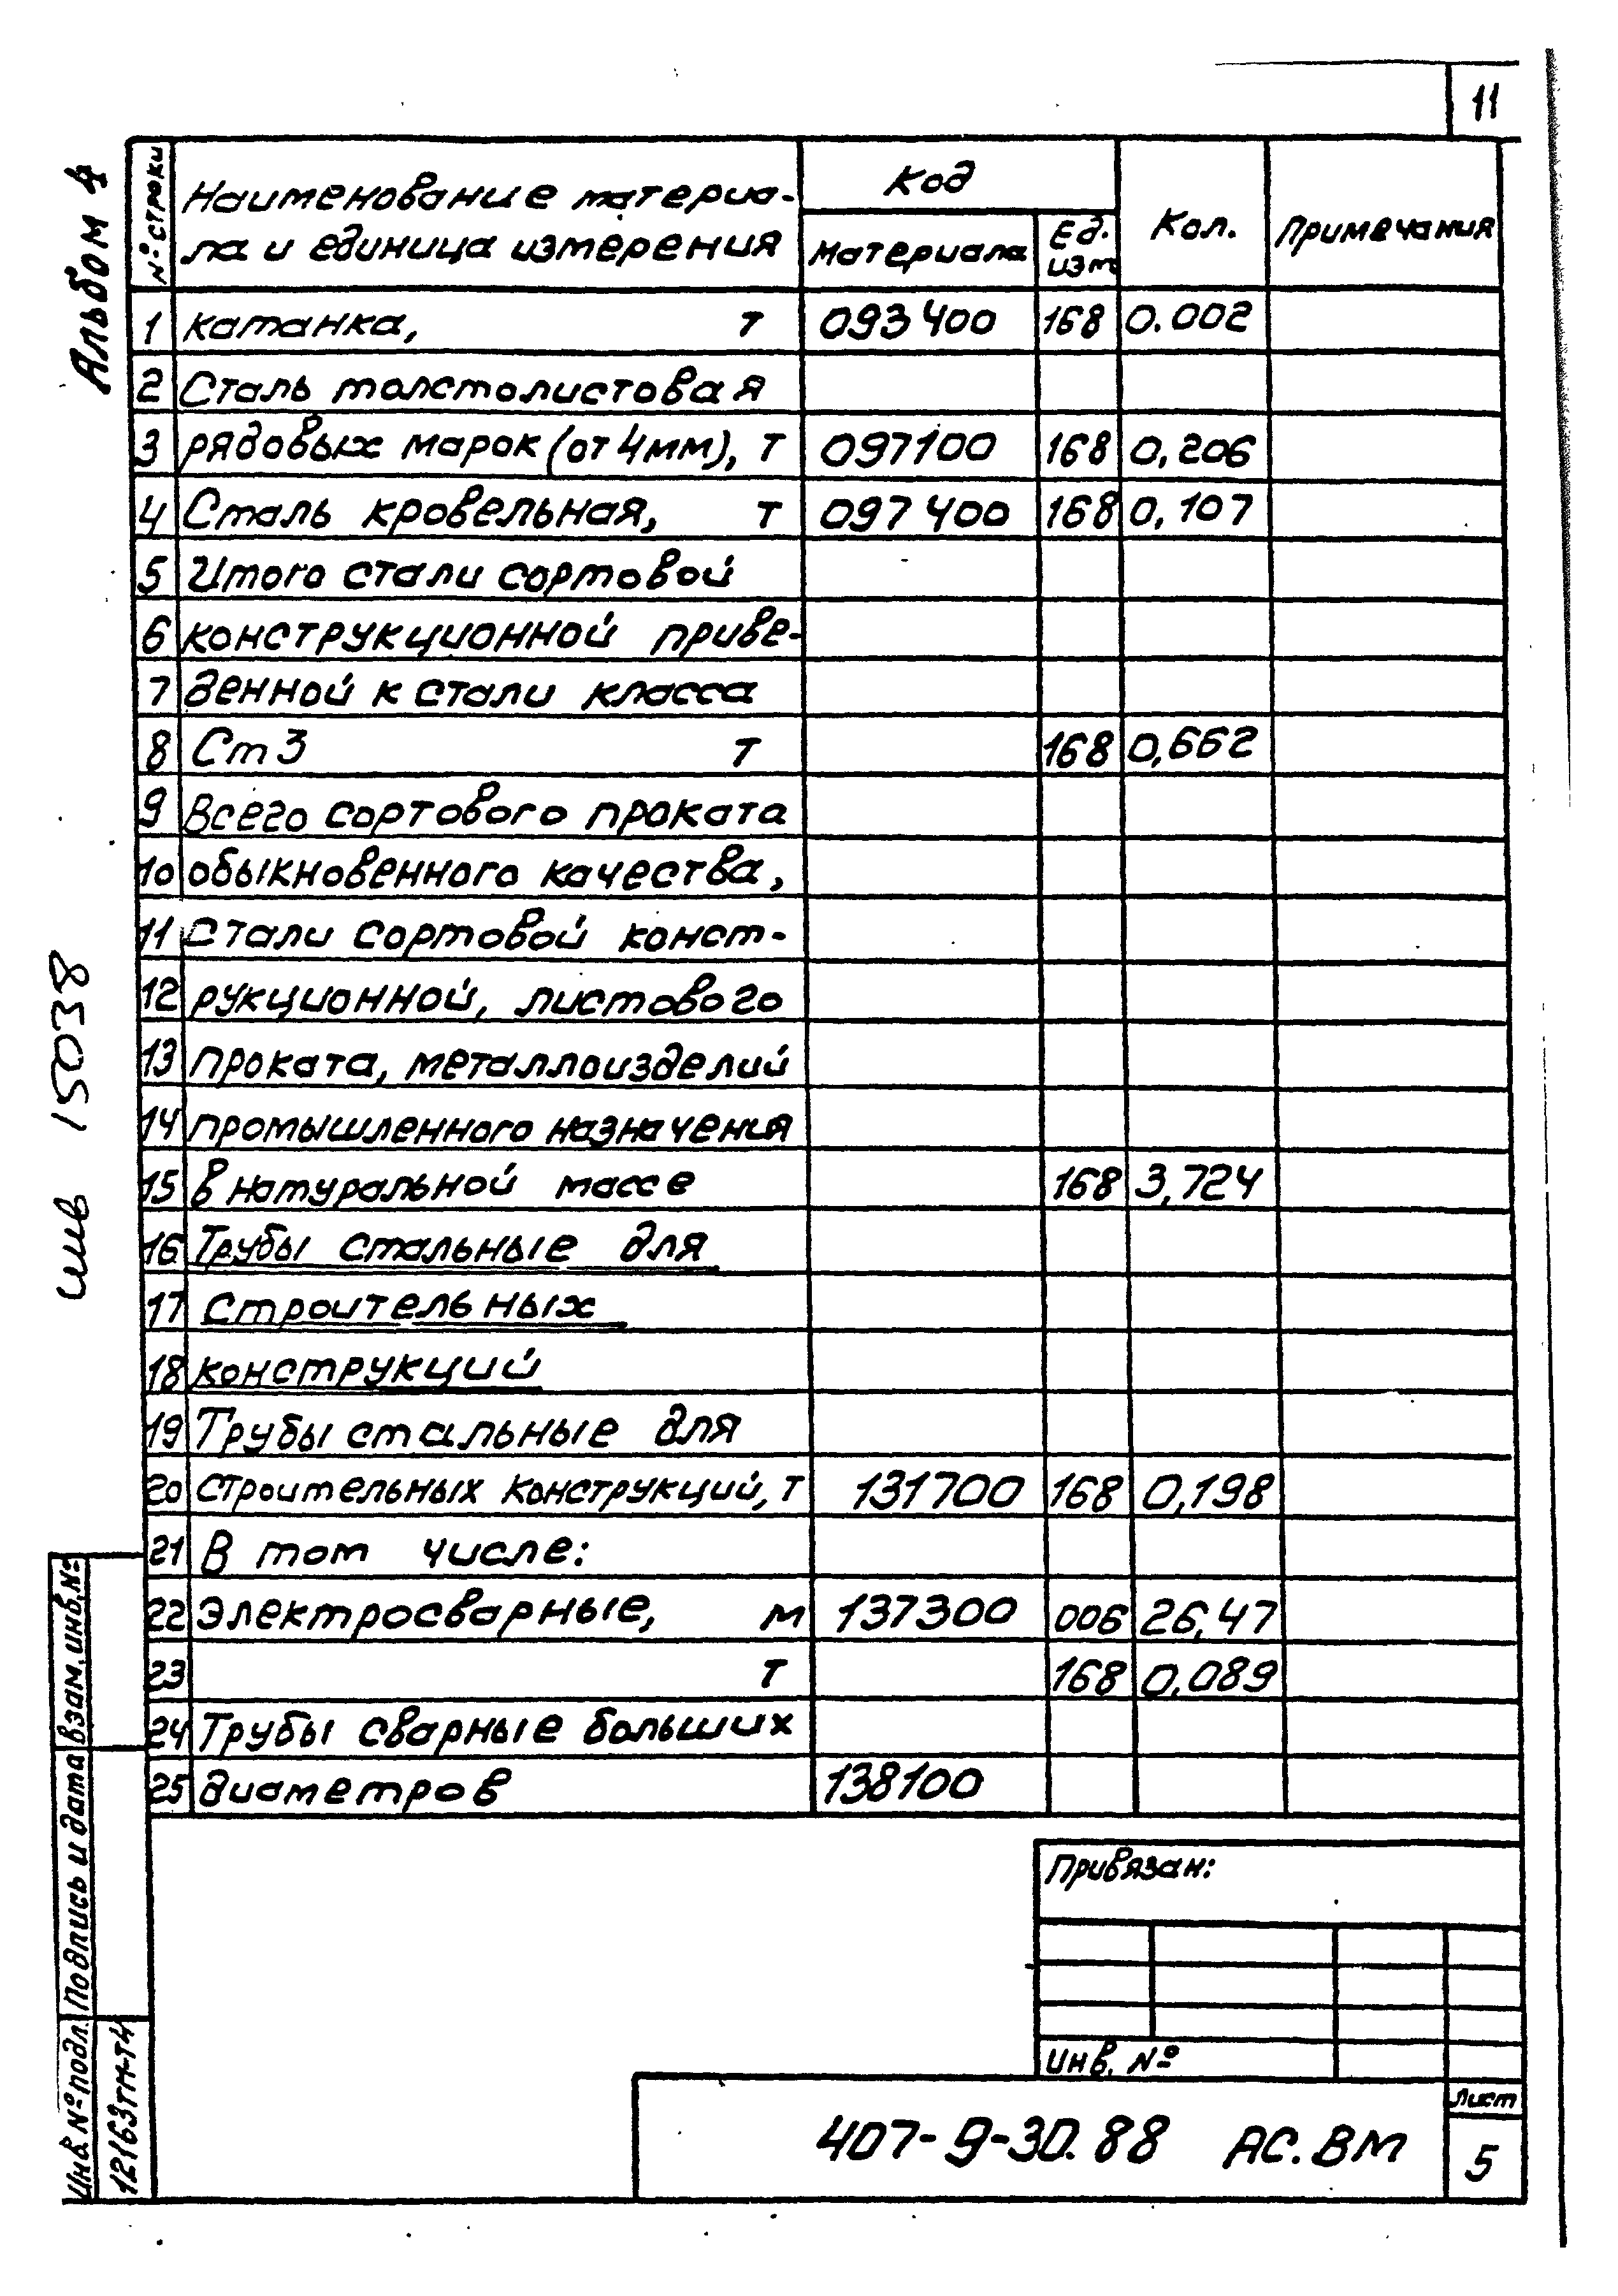 11
Альбом 4
№ строки
Наименование материа-
ла и единица измерения
Код
Материала
Ед.
изм
Кол.
Примечания
1 катанка, т 093400 168 0.002
2 Сталь толстолистовая
3 рядовых марок (от 4мм), т 097100 168 0,206
4 Сталь кровельная, т 097400 168 0,107
5 Итого стали сортовой
6 конструкционной приве-
7 денной к стали класса
8 Ст3 т 168 0,662
9 Всего сортового проката
10 обыкновенного качества,
11 Стали сортовой конст-
12 рукционной, листового
13 проката, металлоизделий
14 промышленного назначения
15 в натуральной массе 168 3,724
16 Трубы стальные для
17 строительных
18 конструкций
19 Трубы стальные для
20 строительных конструкций, т 131700 168 0,198
21 В том числе:
22 Электросварные, м 137300 006 26,47
23 т 168 0,089
24 Трубы сварные больших
25 диаметров 138100
инв 15038
Взам. инв. №
Подпись и дата
Инв. № подл.
12163тм-т4
Привязан:
Инв. №
407-9-30.88 АС.ВМ
Лист
5